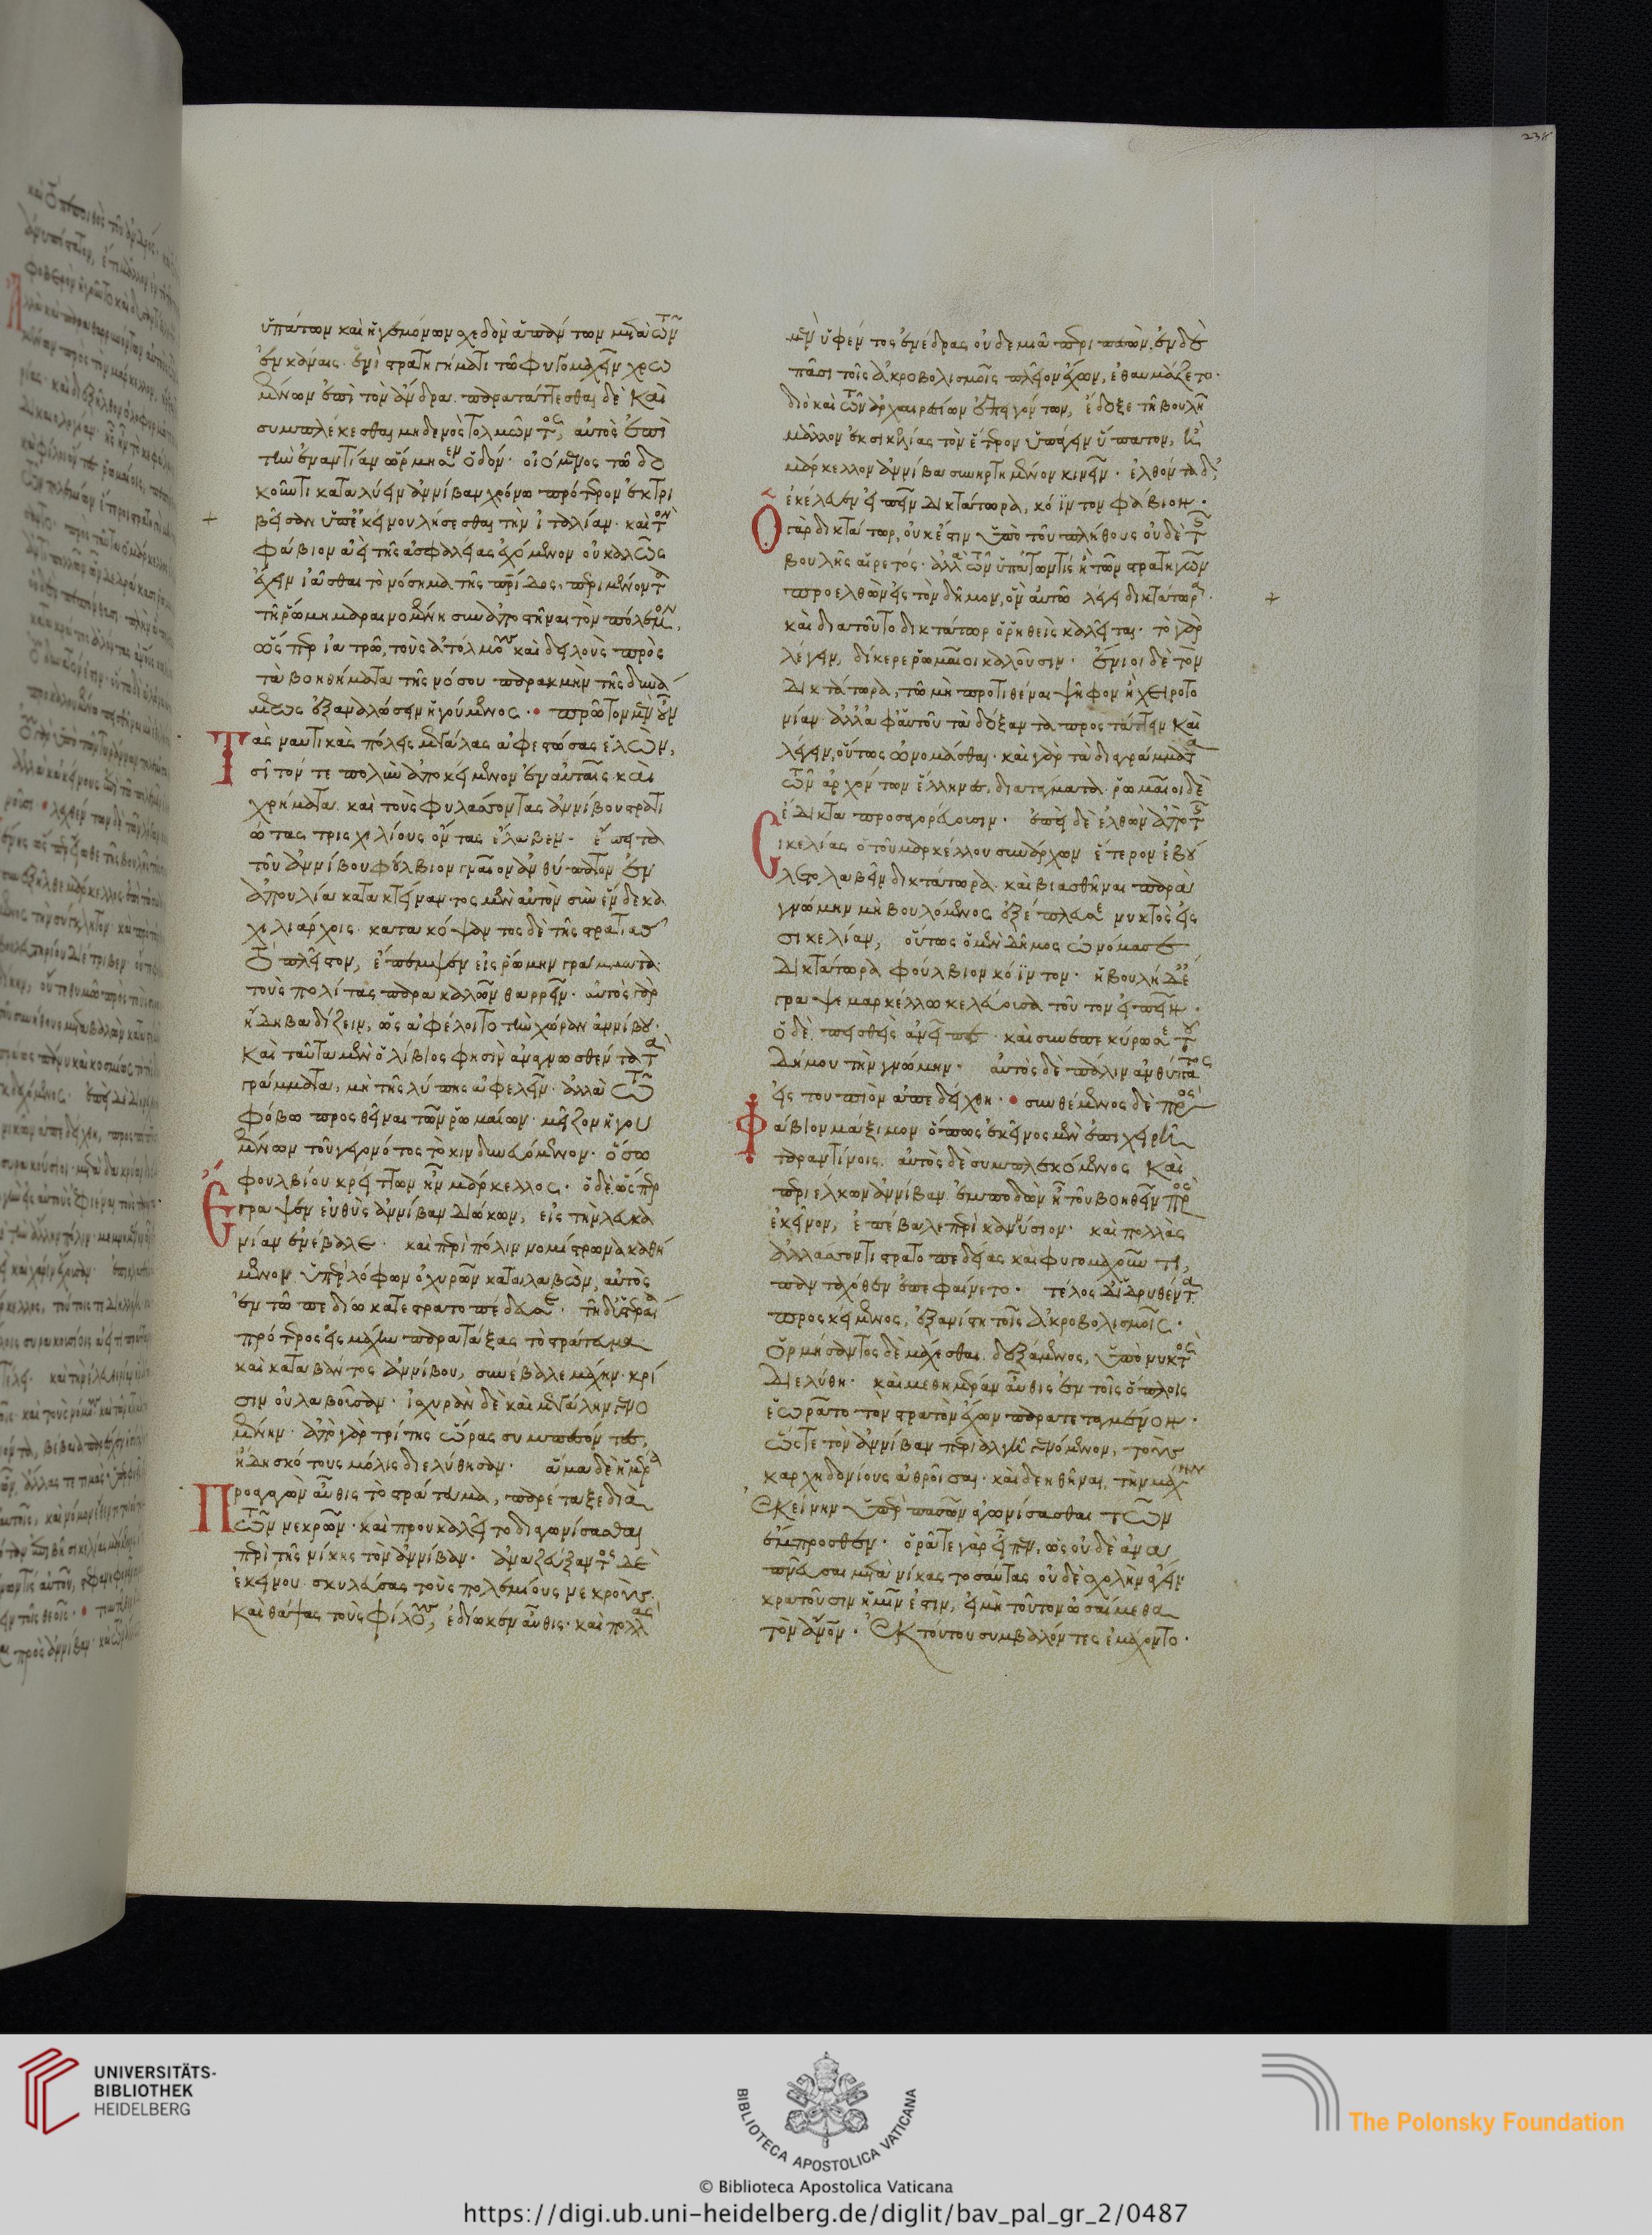 ὑπάτων καὶ ἡγεμόνων σχεδὸν ἁπάντων μετὰ τῶν
ἐν κάναις· ἑνὶ στρατηγήματι τῶ φυγομαχεῖν χρω
μένων ἐπὶ τὸν ἄνδρα. παρατάττεσθαι δὲ καὶ
συμπλέκεσθαι μηδενὸς τολμῶντος, αὐτὸς ἐπὶ
τὴν ἐναντίαν ὥρμησεν ὁδόν· οἰόμενος τῶ δο
κοῦντι καταλύειν ἀννίβαν χρόνω πρότερον ἐκτρι
βεῖσαν ὑπ' ἐκείνου λήσεσθαι τὴν ἰταλίαν· καὶ τὸν
φάβιον ἀεὶ τῆς ἀσφαλείας ἐχόμενον οὐ καλῶς
ἔχειν ἰᾶσθαι τὸ νόσημα τῆς πατρίδος, περιμένοντα
τῆ ῥώμη μαραινομένη συναποσβῆναι τὸν πόλεμον,
ὥσπερ ἰατρῶ, τοὺς ἀτόλμους καὶ δειλοὺς πρὸς
τὰ βοηθήματα τῆς νόσου παρακμὴν τῆς δυνά
μεως ἐξανάλωσιν ἡγούμενος· πρῶτον μὲν οὖν
Τὰς ναυτικὰς πόλεις μεγάλας ἀφεστώσας ἑλὼν,
σῖτόν τε πολὺν ἀποκείμενον ἐν αὐταῖς καὶ
χρήματα. καὶ τοὺς φυλάσσοντας ἀννίβου στρατι
ώτας τρισχιλίους ὄντας ἔλαβεν. ἔπειτα
τοῦ ἀννίβου φούλβιον γναῖον ἀνθύπατον ἐν
ἀπουλία κατακτείναντος μὲν αὐτὸν σὺν ἕνδεκα
χιλιάρχοις. κατακόψαντος δὲ τῆς στρατιᾶς
τὸ πλεῖστον, ἔπεμψεν εἰς ῥώμην γράμματα
τοὺς πολίτας παρακαλῶν θαρρεῖν· αὐτὸς γὰρ
ἤδη βαδίζειν, ὡς ἀφέλοιτο τὴν χώραν ἀννίβου.
καὶ ταῦτα μὲν ὁ λίβιός φησιν ἀναγνωσθέντα τὰ
γράμματα, μὴ τῆς λύπης ἀφελεῖν· ἀλλὰ τῶ
φόβω προσθεῖναι τῶν ῥωμαίων· μεῖζον ἡγου
μένων τοῦ γεγονότος τὸ κινδυνευόμενον· ὅσω
φουλβίου κρείττων ἦν μάρκελλος. ὁ δὲ ὥσπερ
Ἔγραψεν εὐθὺς ἀννίβαν διώκων, εἰς τὴν λευκα
νίαν ἐνέβαλε. καὶ περὶ πόλιν νομίστρωνα καθή
μενον ὑπὲρ λόφων ὀχυρῶν καταλαβὼν, αὐτὸς
ἐν τῶ πεδίω κατεστρατοπέδευσε. τῆ δ' ὑστεραία
πρότερος εἰς μάχην παρατάξας τὸ στράτευμα
καὶ καταβάντος ἀννίβου, συνέβαλε μάχην κρί
σιν οὐ λαβοῦσαν· ἰσχυρὰν δὲ καὶ μεγάλην γενο
μένην. ἀπὸ γὰρ τρίτης ὥρας συμπεσόντες,
ἤδη σκότους μόλις διελύθησαν. ἅμα δὲ ἡμέρα
Προαγαγὼν αὖθις τὸ στράτευμα, παρέταξε διὰ
τῶν νεκρῶν· καὶ προυκαλεῖτο διαγωνίσασθαι
περὶ τῆς νίκης τὸν ἀννίβαν. ἀναζεύξαντος δὲ
ἐκείνου σκυλεύσας τοὺς πολεμίους νεκροὺς.
καὶ θάψας τοὺς φίλους, ἐδίωκεν αὖθις· καὶ πολλὰς
238
μὲν ὑφέντος ἐνέδρας οὐδεμιᾶ περιπεσών. ἐν δὲ
πᾶσι τοῖς ἀκροβολισμοῖς πλεῖον ἔχων, ἐθαυμάζετο.
διὸ καὶ τῶν ἀρχαιρεσίων ἐπειγόντων, ἔδοξε τῆ βουλῆ
μᾶλλον ἐκ σικελίας τὸν ἕτερον ὑπάγειν ὕπατον, ἢ
μάρκελλον ἀννίβα συνηρτημένον κινεῖν. ἐλθόντα δ'
ἐκέλευεν εἰπεῖν δικτάτωρα, κόϊντον φάβιον.
Ὁ γὰρ δικτάτωρ, οὐκ ἔστιν ὑπὸ τοῦ πλήθους οὐδὲ τῆς
βουλῆς αἱρετός· ἀλλὰ τῶν ὑπάτων τίς ἢ τῶν στρατηγῶν
προελθὼν εἰς τὸν δῆμον, ὃν αὐτῶ λέγει δικτάτωρα.
καὶ διατοῦτο δικτάτωρ ὁ ῥηθεὶς καλεῖται· τὸ γὰρ
λέγειν, δίκερε ῥωμαῖοι καλοῦσιν. ἔνιοι δὲ τὸν
δικτάτωρα, τῶ μὴ προτιθέναι ψῆφον ἢ χειροτο
νίαν· ἀλλ' ἀφ' αὑτοῦ τὰ δόξαντα προστάττειν καὶ
λέγειν, οὕτως ὠνομάσθαι. καὶ γὰρ τὰ διαγράμματα
τῶν ἀρχόντων ἕλληνες, διατάγματα. ῥωμαῖοι δὲ
ἔδικτα προσαγορεύουσιν. ἐπεὶ δὲ ἐλθὼν ἀπὸ τῆς
Σικελίας ὁ τοῦ μαρκέλλου συνάρχων ἕτερον ἐβού
λετο λαβεῖν δικτάτωρα. καὶ βιασθῆναι παρὰ
γνώμην μὴ βουλόμενος ἐξέπλευσε νυκτὸς εἰς
σικελίαν, οὕτως ὁ μὲν δῆμος ὠνόμασε
δικτάτωρα φούλβιον κόϊντον. ἡ βουλὴ δ' ἔ
γραψε μαρκέλλω κελεύουσα τοῦτον εἰπεῖν.
ὁ δὲ πεισθεὶς ἀνεῖπε καὶ συνεπεκύρωσε τοῦ
δήμου τὴν γνώμην. αὐτὸς δὲ πάλιν ἀνθύπατος
εἰς τουπιὸν ἀπεδείχθη. συνθέμενος δὲ πρὸς
Φάβιον μάξιμον ὅπως ἐκεῖνος μὲν ἐπιχειρῆ
ταραντίνοις. αὐτὸς δὲ συμπλεκόμενος καὶ
περιέλκων ἀννίβαν ἐμποδὼν ἦ τοῦ βοηθεῖν πρὸς
ἐκεῖνον, ἐπέβαλε περὶ κανύσιον. καὶ πολλὰς
ἀλλάσσοντι στρατοπεδείας καὶ φυγομαχοῦντι,
πανταχόθεν ἐπεφαίνετο. τέλος δ' ἱδρυθέντα
προσκείμενος, ἐξανίστη τοῖς ἀκροβολισμοῖς.
ὁρμήσαντος δὲ μάχεσθαι δεξάμενος, ὑπὸ νυκτὸς
διελύθη. καὶ μεθημέραν αὖθις ἐν τοῖς ὅπλοις
ἑωρᾶτο τὸν στρατὸν ἔχων παρατεταγμένον.
ὥστε τὸν ἀννίβαν περιαλγῆ γενόμενον, τοὺς
καρχηδονίους ἀθροῖσαι. καὶ δεηθῆναι, τὴν μάχην
ἐκείνην ὑπὲρ πασῶν ἀγωνίσασθαι τῶν
ἔμπροσθεν. ὁρᾶτε γὰρ εἶπεν, ὡς οὐδὲ ἀνα
πνεῦσαι μετὰ νίκας τοσαύτας οὐδὲ σχολὴν ἄγειν
κρατοῦσιν ἡμῖν ἔστιν, εἰ μὴ τοῦτον ὠσαίμεθα
τὸν ἄνθρωπον. Ἐκ τούτου συμβαλόντες ἐμάχοντο.
UNIVERSITÄTS-
BIBLIOTHEK
HEIDELBERG
BIBLIOTECA APOSTOLICA VATICANA
The Polonsky Foundation
© Biblioteca Apostolica Vaticana
https://digi.ub.uni-heidelberg.de/diglit/bav_pal_gr_2/0487